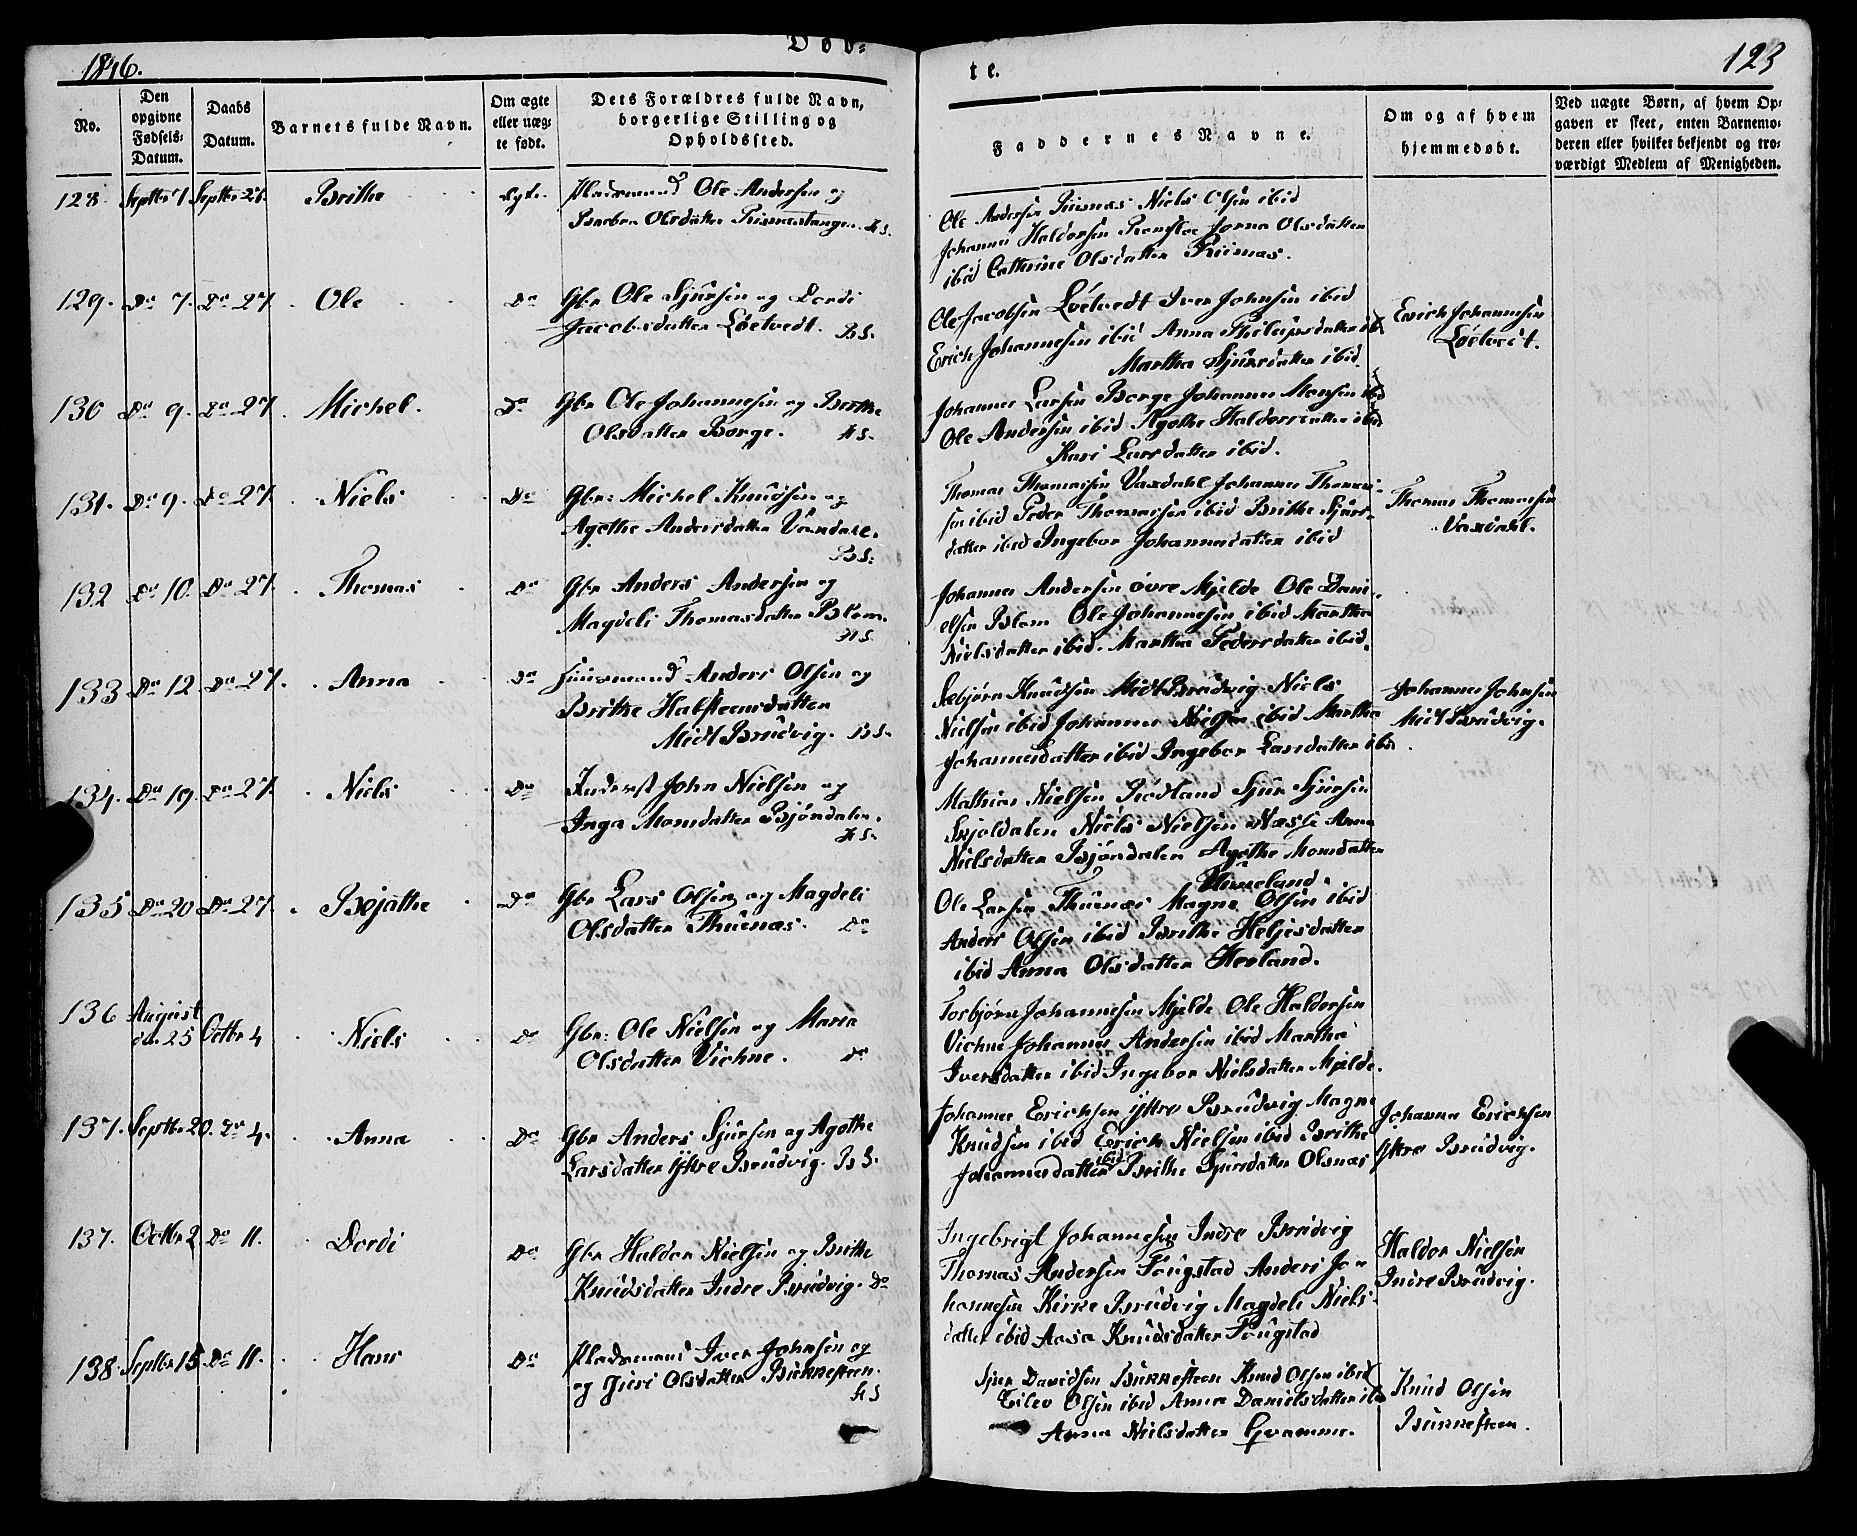 1846.
Døb-
te.
123
No.
Den opgivne Fødsels-Datum.
Daabs Datum.
Barnets fulde Navn.
Om ægte eller uæg-te født.
Dets Forældres fulde Navn, borgerlige Stilling og Opholdssted.
Faddernes Navne.
Om og af hvem hjemmedøbt.
Ved uægte Børn, af hvem Op-gaven er skeet, enten Barnemo-deren eller hvilket bekjendt og tro-værdigt Medlem af Menigheden.
128. Septbr 7. Septbr 27. Brithe Ægte. Pladsmand Ole Andersen og
Barbra Olsdatter H S.
Ole Andersen Niels Olsen ibid
Johannes Haldorsen Olsdatter
ibid Cathrine Olsdatter
129. Do 7. Do 27. Ole Do Gbr Ole Sjursen og Dordi
Jacobsdatter Løetvedt. B S.
Ole Jacobsen Løetvedt Iver Johnsen ibid
Erich Johannesen ibid Anna Philipsdatter ibid
Martha Sjursdatter ibid.
Erich Johannesen
Løetvedt.
130 Do 9. Do 27. Michel. Do Gbr Ole Johannesen og Berthe
Olsdatter Borge. H S.
Johannes Larsen Borge Johannes Monsen ibid
Ole Andersen ibid Agathe Haldorsdatter ibid
Kari Larsdatter ibid.
131. Do 9. Do 27. Niels Do Gbr: Michel Knudsen og
Agathe Andersdatter Vaxdale.
B S.
Thomas Thomassen Vaxdahl Johannes Thomas-
sen ibid Peder Thomassen ibid Brithe Sjurs-
datter ibid Ingebor Johannesdatter ibid
Thomas Thomassen
Vaxdahl.
132 Do 10. Do 27. Thomas Do Gbr Anders Andersen og
Magdeli Thomasdatter Blom.
H S.
Johannes Andersen øvre Mjelde Ole Dani-
elsen Blom Ole Johannesen ibid Martha
Nielsdatter ibid. Martha Pedersdatter ibid.
133 Do 12 Do 27. Anna Do Huusmand Anders Olsen og
Brithe Halsteensdatter
Midt Brudvig. B S.
Knudsen Midt Brudvig Niels
Nielsen ibid Johannes Nielsen ibid Martha
Johannesdatter ibid Ingebor Larsdatter ibid
Johannes Johnsen
Midt Brudvig.
134. Do 19. Do 27. Niels Do Inderst John Nielsen og
Inga Monsdatter Bjørndalen.
H S.
Mathias Nielsen Rødland Sjur Sjursen
Skjoldalen Niels Nielsen Næsse Anna
Nielsdatter Bjørndalen Agathe Monsdatter
135 Do 20 Do 27 Do Gbr Lars Olsen og Magdeli
Olsdatter Thuenæs. Do
Ole Larsen Thuenæs Magne Olsen ibid
Anders Olsen ibid Brithe Heljesdatter
ibid Anna Olsdatter Herland.
136 August
d. 25 Octbr 4 Niels Do Gbr: Ole Nielsen og Maria
Olsdatter Vichne. Do
Torbjørn Johannesen Mjelde Ole Haldorsen
Vichne Johannes Andersen ibid Martha
Iversdatter ibid Ingebor Nielsdatter Mjelde.
137. Septbr 20. Do 4. Anna Do Gbr Anders Sjursen og Agathe
Larsdatter Yttre Brudvig. B S.
Johannes Erichsen Yttre Brudvig Magne
Knudsen ibid Erich Nielsen ibid Brithe
Johannesdatter ibid Brithe Sjursdatter Olsnæs
Johannes Erichsen
Yttre Brudvig.
137. Octbr 2 Do 11. Dordi Do Gbr Haldor Nielsen og Brithe
Knudsdatter Indre Brudvig. Do
Ingebrigt Johannesen Indre Brudvig
Thomas Andersen Fougstad Anders Jo-
hannesen Kirke Brudvig Magdeli Niels-
datter ibid Aasa Knudsdatter Fougstad
Haldor Nielsen
Indre Brudvig.
138. Septbr 15 Do 11. Hans Do Pladsmand Iver Johnsen og
og Guri Olsdatter Bukkesteen.
H S
Sjur Davidsen Bukkesteen Knud Olsen ibid
Eilev Olsen ibid Anna Danielsdatter ibid
Anna Nielsdatter Gvamme.
Knud Olsen
Bukkesteen.